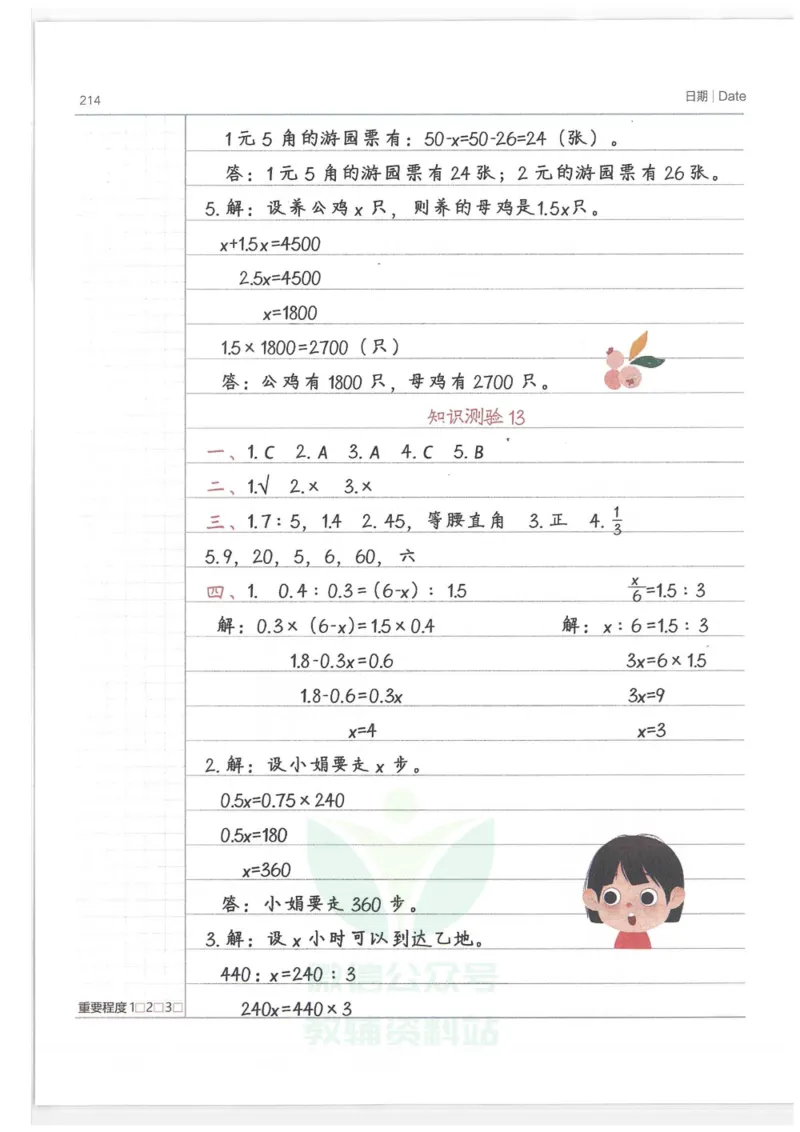 214
日期 | Date
1元5角的游园票有：50-x=50-26=24（张）。
答：1元5角的游园票有24张；2元的游园票有26张。
5.解：设养公鸡x只，则养的母鸡是1.5x只。
x+1.5x=4500
2.5x=4500
x=1800
1.5×1800=2700（只）
答：公鸡有1800只，母鸡有2700只。
知识测验13
一、1.C 2.A 3.A 4.C 5.B
二、1.√ 2.× 3.×
三、1.7：5，1.4 2.45，等腰直角 3.正 4.1/3
5.9，20，5，6，60，六
四、1. 0.4：0.3=(6-x)：1.5 x/6=1.5：3
解：0.3×(6-x)=1.5×0.4 解：x：6=1.5：3
1.8-0.3x=0.6 3x=6×1.5
1.8-0.6=0.3x 3x=9
x=4 x=3
2.解：设小娟要走x步。
0.5x=0.75×240
0.5x=180
x=360
答：小娟要走360步。
3.解：设x小时可以到达乙地。
440：x=240：3
微信公众号
重要程度1□2□3□
240x=440×3
教辅资料站